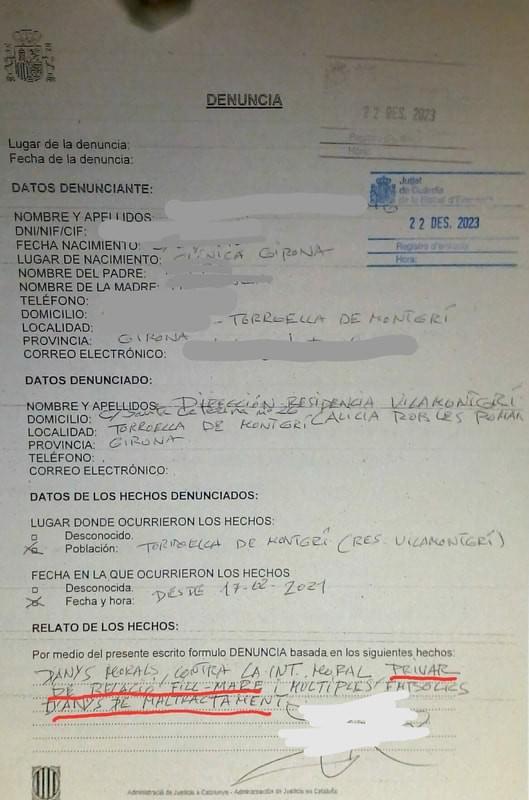 DENUNCIA
22 DES. 2023
Lugar de la denuncia:
Fecha de la denuncia:
Jutjat
de Guàrdia
22 DES. 2023
Registre d'entrada
Hora:
DATOS DENUNCIANTE:
NOMBRE Y APELLIDOS
DNI/NIF/CIF:
FECHA NACIMIENTO:
LUGAR DE NACIMIENTO: GIRONA
NOMBRE DEL PADRE:
NOMBRE DE LA MADRE:
TELÉFONO:
DOMICILIO:
LOCALIDAD: - TORROELLA DE MONTGRÍ
PROVINCIA: GIRONA
CORREO ELECTRÓNICO:
DATOS DENUNCIADO:
NOMBRE Y APELLIDOS: DIRECCIÓN RESIDENCIA VILAMONTGRÍ
DOMICILIO: C/ ALICIA ROBLES ROMAN
LOCALIDAD: TORROELLA DE MONTGRÍ
PROVINCIA: GIRONA
TELÉFONO:
CORREO ELECTRÓNICO:
DATOS DE LOS HECHOS DENUNCIADOS:
LUGAR DONDE OCURRIERON LOS HECHOS:
Desconocido.
Población: TORROELLA DE MONTGRÍ (RES. VILAMONTGRÍ)
FECHA EN LA QUE OCURRIERON LOS HECHOS
Desconocida.
Fecha y hora: DESDE 2021
RELATO DE LOS HECHOS:
Por medio del presente escrito formulo DENUNCIA basada en los siguientes hechos:
DANYS MORALS, CONTRA LA INT. MORAL PRIVAR
DE RELACIÓ FILL-MARE I MULTIPLES
DANYS DE MALTRACTAMENT
Administració de Justícia a Catalunya - Administración de Justicia en Cataluña